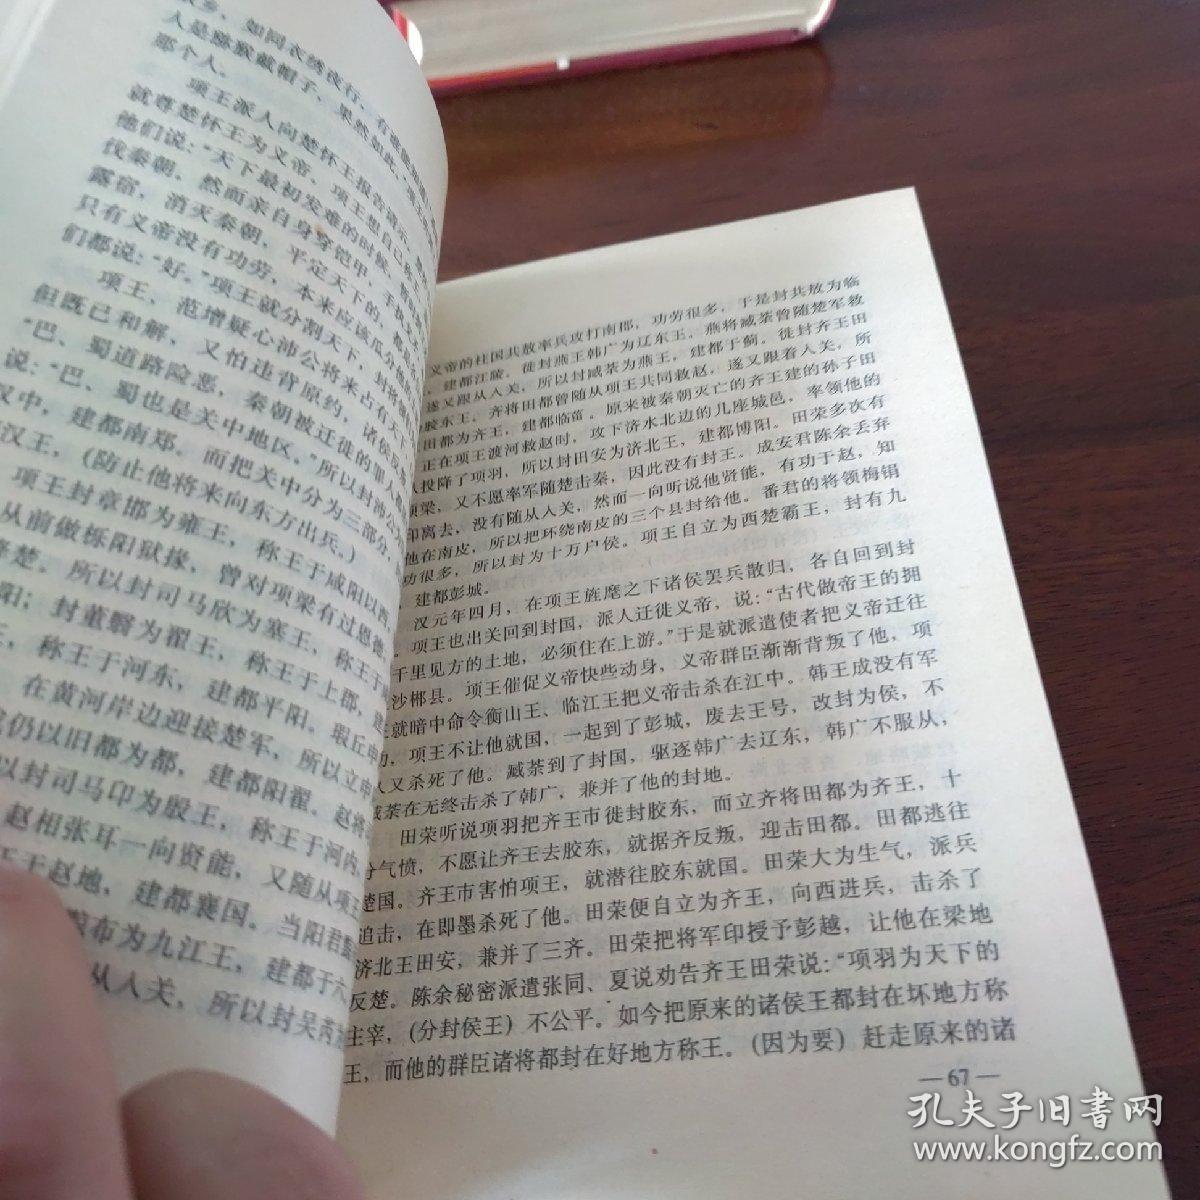 故乡，如同衣绣夜行，有谁能知
人是猕猴戴帽子，果然如此。”项王
那个人。
项王派人向楚怀王报告请示。
就尊楚怀王为义帝。项王想自己称
他们说：“天下最初发难的时候，暂时
伐秦朝。然而亲自身穿铠甲，手执
露宿，消灭秦朝，平定天下的，都是
只有义帝没有功劳，本来应该瓜分
们都说：“好。”项王就分割天下，封将领
项王、范增疑心沛公将来占有天下
但既已和解，又怕违背原约，诸侯反
“巴、蜀道路险恶，秦朝被迁徙的罪人都
说：“巴、蜀也是关中地区。”所以封沛公
汉中，建都南郑。而把关中分为三部分，
汉王，(防止他将来向东方出兵。)
项王封章邯为雍王，称王于咸阳以西，
从前做栎阳狱掾，曾对项梁有过恩德，
降楚。所以封司马欣为塞王，称王于
阳；封董翳为翟王，称王于上郡，建
王，称王于河东，建都平阳。瑕丘申
在黄河岸边迎接楚军，所以立申
成仍以旧都为都，建都阳翟。赵将
以封司马卬为殷王，称王于河内，
赵相张耳一向贤能，又随从项王
王于赵地，建都襄国。当阳君黥
布为九江王，建都于六
从入关，所以封吴芮
义帝的柱国共敖率兵攻打南郡，功劳很多，于是封共敖为临
建都江陵。徙封燕王韩广为辽东王。燕将臧荼曾随楚军救
遂又跟从入关，所以封臧荼为燕王，建都于蓟。徙封齐王田
胶东王。齐将田都曾随从项王共同救赵，遂又跟着入关，所
田都为齐王，建都临菑。原来被秦朝灭亡的齐王建的孙子田
正在项王渡河救赵时，攻下济水北边的几座城邑，率领他的
投降了项羽，所以封田安为济北王，建都博阳。田荣多次有
项梁，又不愿率军随楚击秦，因此没有封王。成安君陈余丢弃
印离去，没有随从入关，然而一向听说他贤能，有功于赵，知
他在南皮，所以把环绕南皮的三个县封给他。番君的将领梅鋗
功很多，所以封为十万户侯。项王自立为西楚霸王，封有九
，建都彭城。
汉元年四月，在项王旌麾之下诸侯罢兵散归，各自回到封
。项王也出关回到封国，派人迁徙义帝，说：“古代做帝王的拥
千里见方的土地，必须住在上游。”于是就派遣使者把义帝迁往
沙郴县。项王催促义帝快些动身，义帝群臣渐渐背叛了他，项
就暗中命令衡山王、临江王把义帝击杀在江中。韩王成没有军
功，项王不让他就国，一起到了彭城，废去王号，改封为侯，不
久又杀死了他。臧荼到了封国，驱逐韩广去辽东，韩广不服从，
臧荼在无终击杀了韩广，兼并了他的封地。
田荣听说项羽把齐王市徙封胶东，而立齐将田都为齐王，十
分气愤，不愿让齐王去胶东，就据齐反叛，迎击田都。田都逃往
楚国。齐王市害怕项王，就潜往胶东就国。田荣大为生气，派兵
追击，在即墨杀死了他。田荣便自立为齐王，向西进兵，击杀了
济北王田安，兼并了三齐。田荣把将军印授予彭越，让他在梁地
反楚。陈余秘密派遣张同、夏说劝告齐王田荣说：“项羽为天下的
主宰，(分封侯王）不公平。如今把原来的诸侯王都封在坏地方称
王，而他的群臣诸将都封在好地方称王。（因为要）赶走原来的诸
—67—
孔夫子旧书网
www.kongfz.com